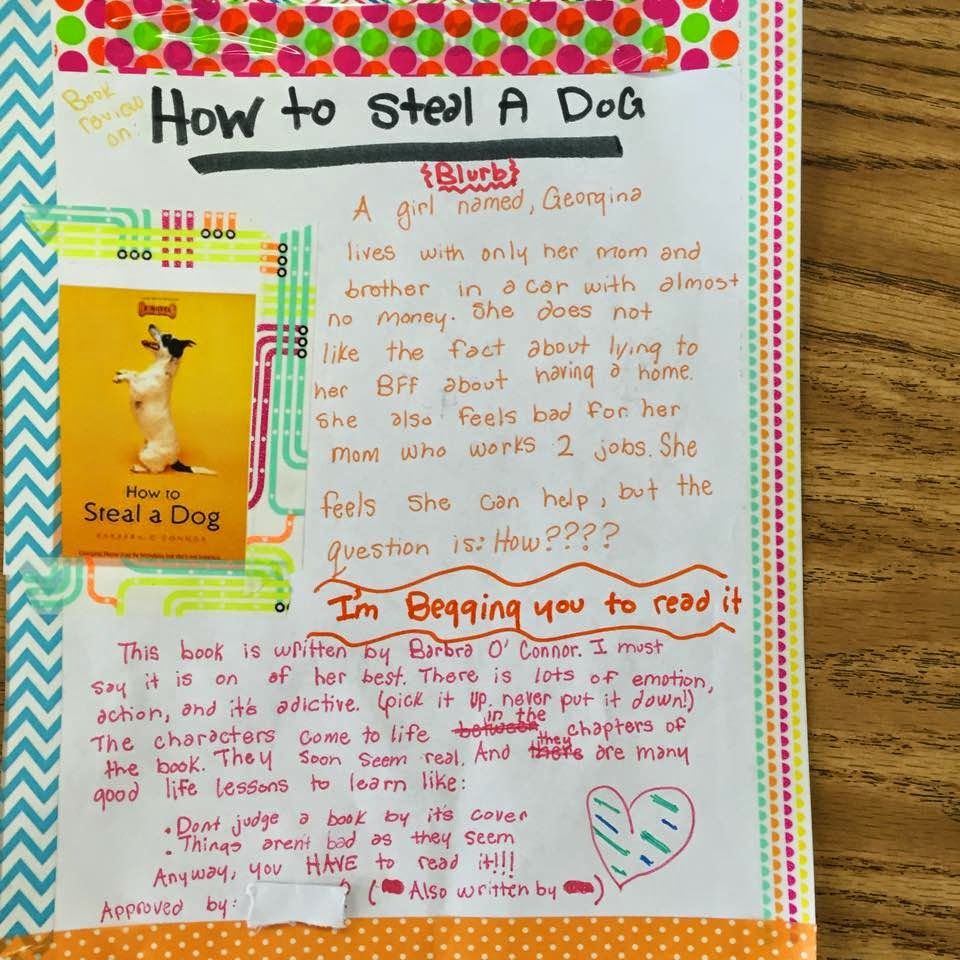 Book
review
on:
How to Steal A DoG
{Blurb}
A girl named, Georgina
lives with only her mom and
brother in a car with almost
no money. She does not
like the fact about lying to
her BFF about having a home.
She also feels bad for her
mom who works 2 jobs. She
feels she can help, but the
question is: How????
How to
Steal a Dog
BARBARA O'CONNOR
I'm Begging you to read it
This book is written by Barbra O'Connor. I must
say it is on of her best. There is lots of emotion,
action, and it's adictive. (pick it up, never put it down!)
The characters come to life between in the chapters of
the book. They soon seem real. And there they are many
good life lessons to learn like:
• Dont judge a book by it's cover
• Things aren't bad as they seem
Anyway, you HAVE to read it!!!
Approved by: ( Also written by )